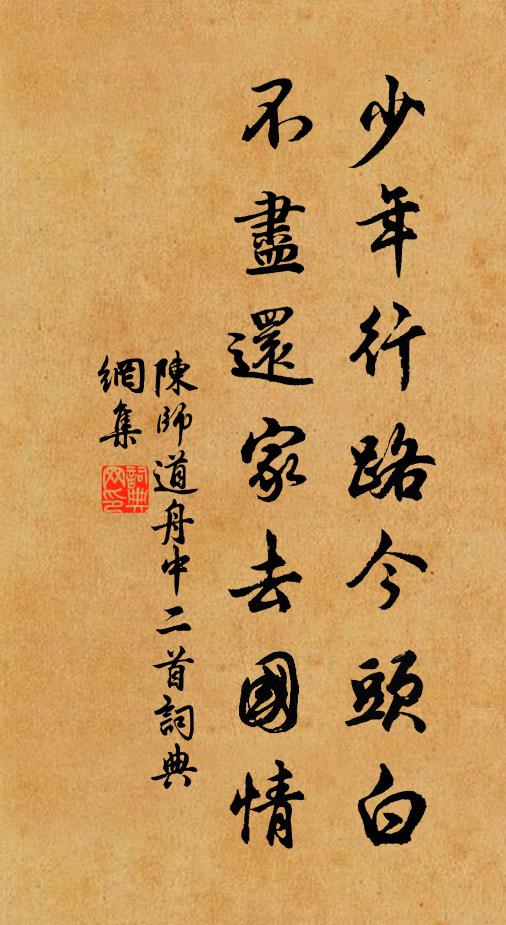 少年行路今頭白
不盡還家去國情
陳師道舟中二首詞典
網集
詞典
网印